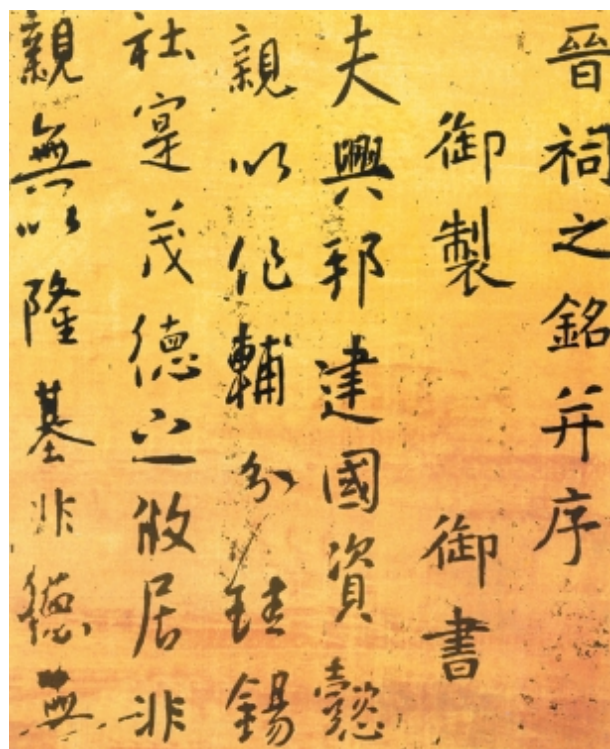 晉祠之銘并序
御製 御書
夫興邦建國資懿
親以作輔分珪錫
社寔茂德之攸居非
親無以隆基非德無